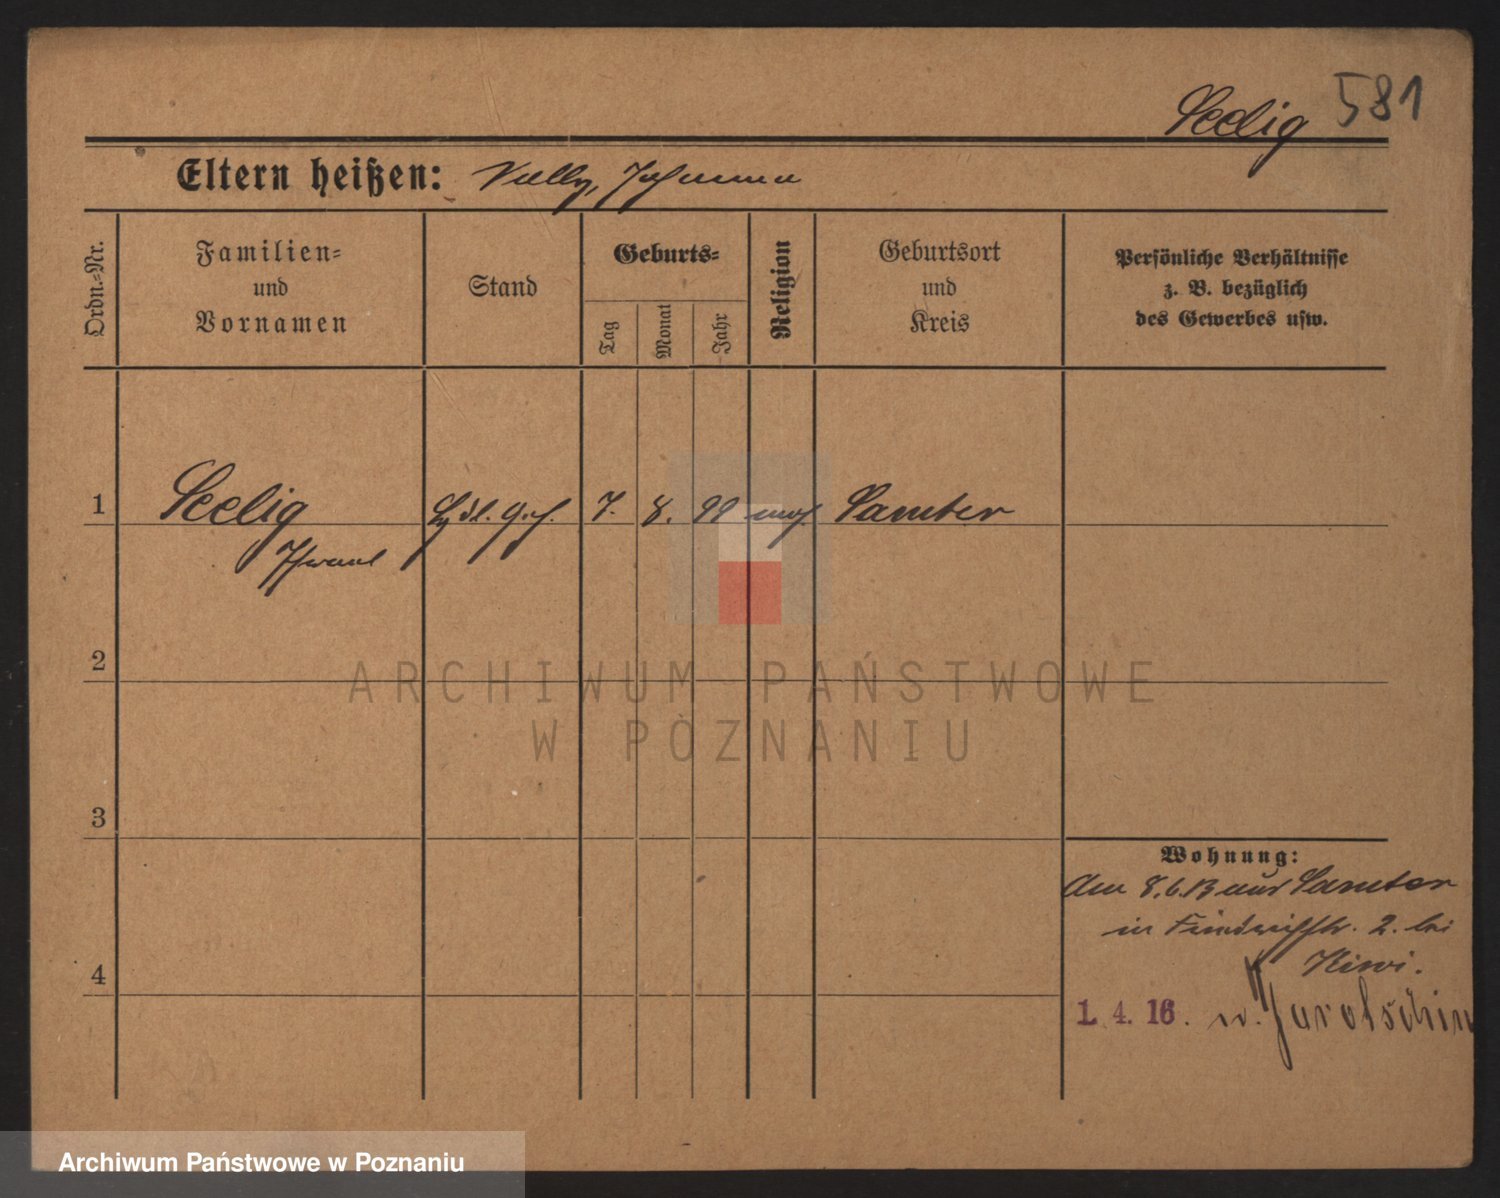 Seelig 581
Eltern heißen: Nelly, Johanna
Ordn.-Nr.
Familien-
und
Vornamen
Stand
Geburts-
Tag
Monat
Jahr
Religion
Geburtsort
und
Kreis
Persönliche Verhältnisse
z. B. bezüglich
des Gewerbes usw.
1 Seelig 7. 8. 99 mos. Samter
2
3
4
Wohnung:
Am 8.6.13 aus Samter
in 2. bei
1. 4. 16. n. Jarotschin
ARCHIWUM PAŃSTWOWE
W POZNANIU
Archiwum Państwowe w Poznaniu